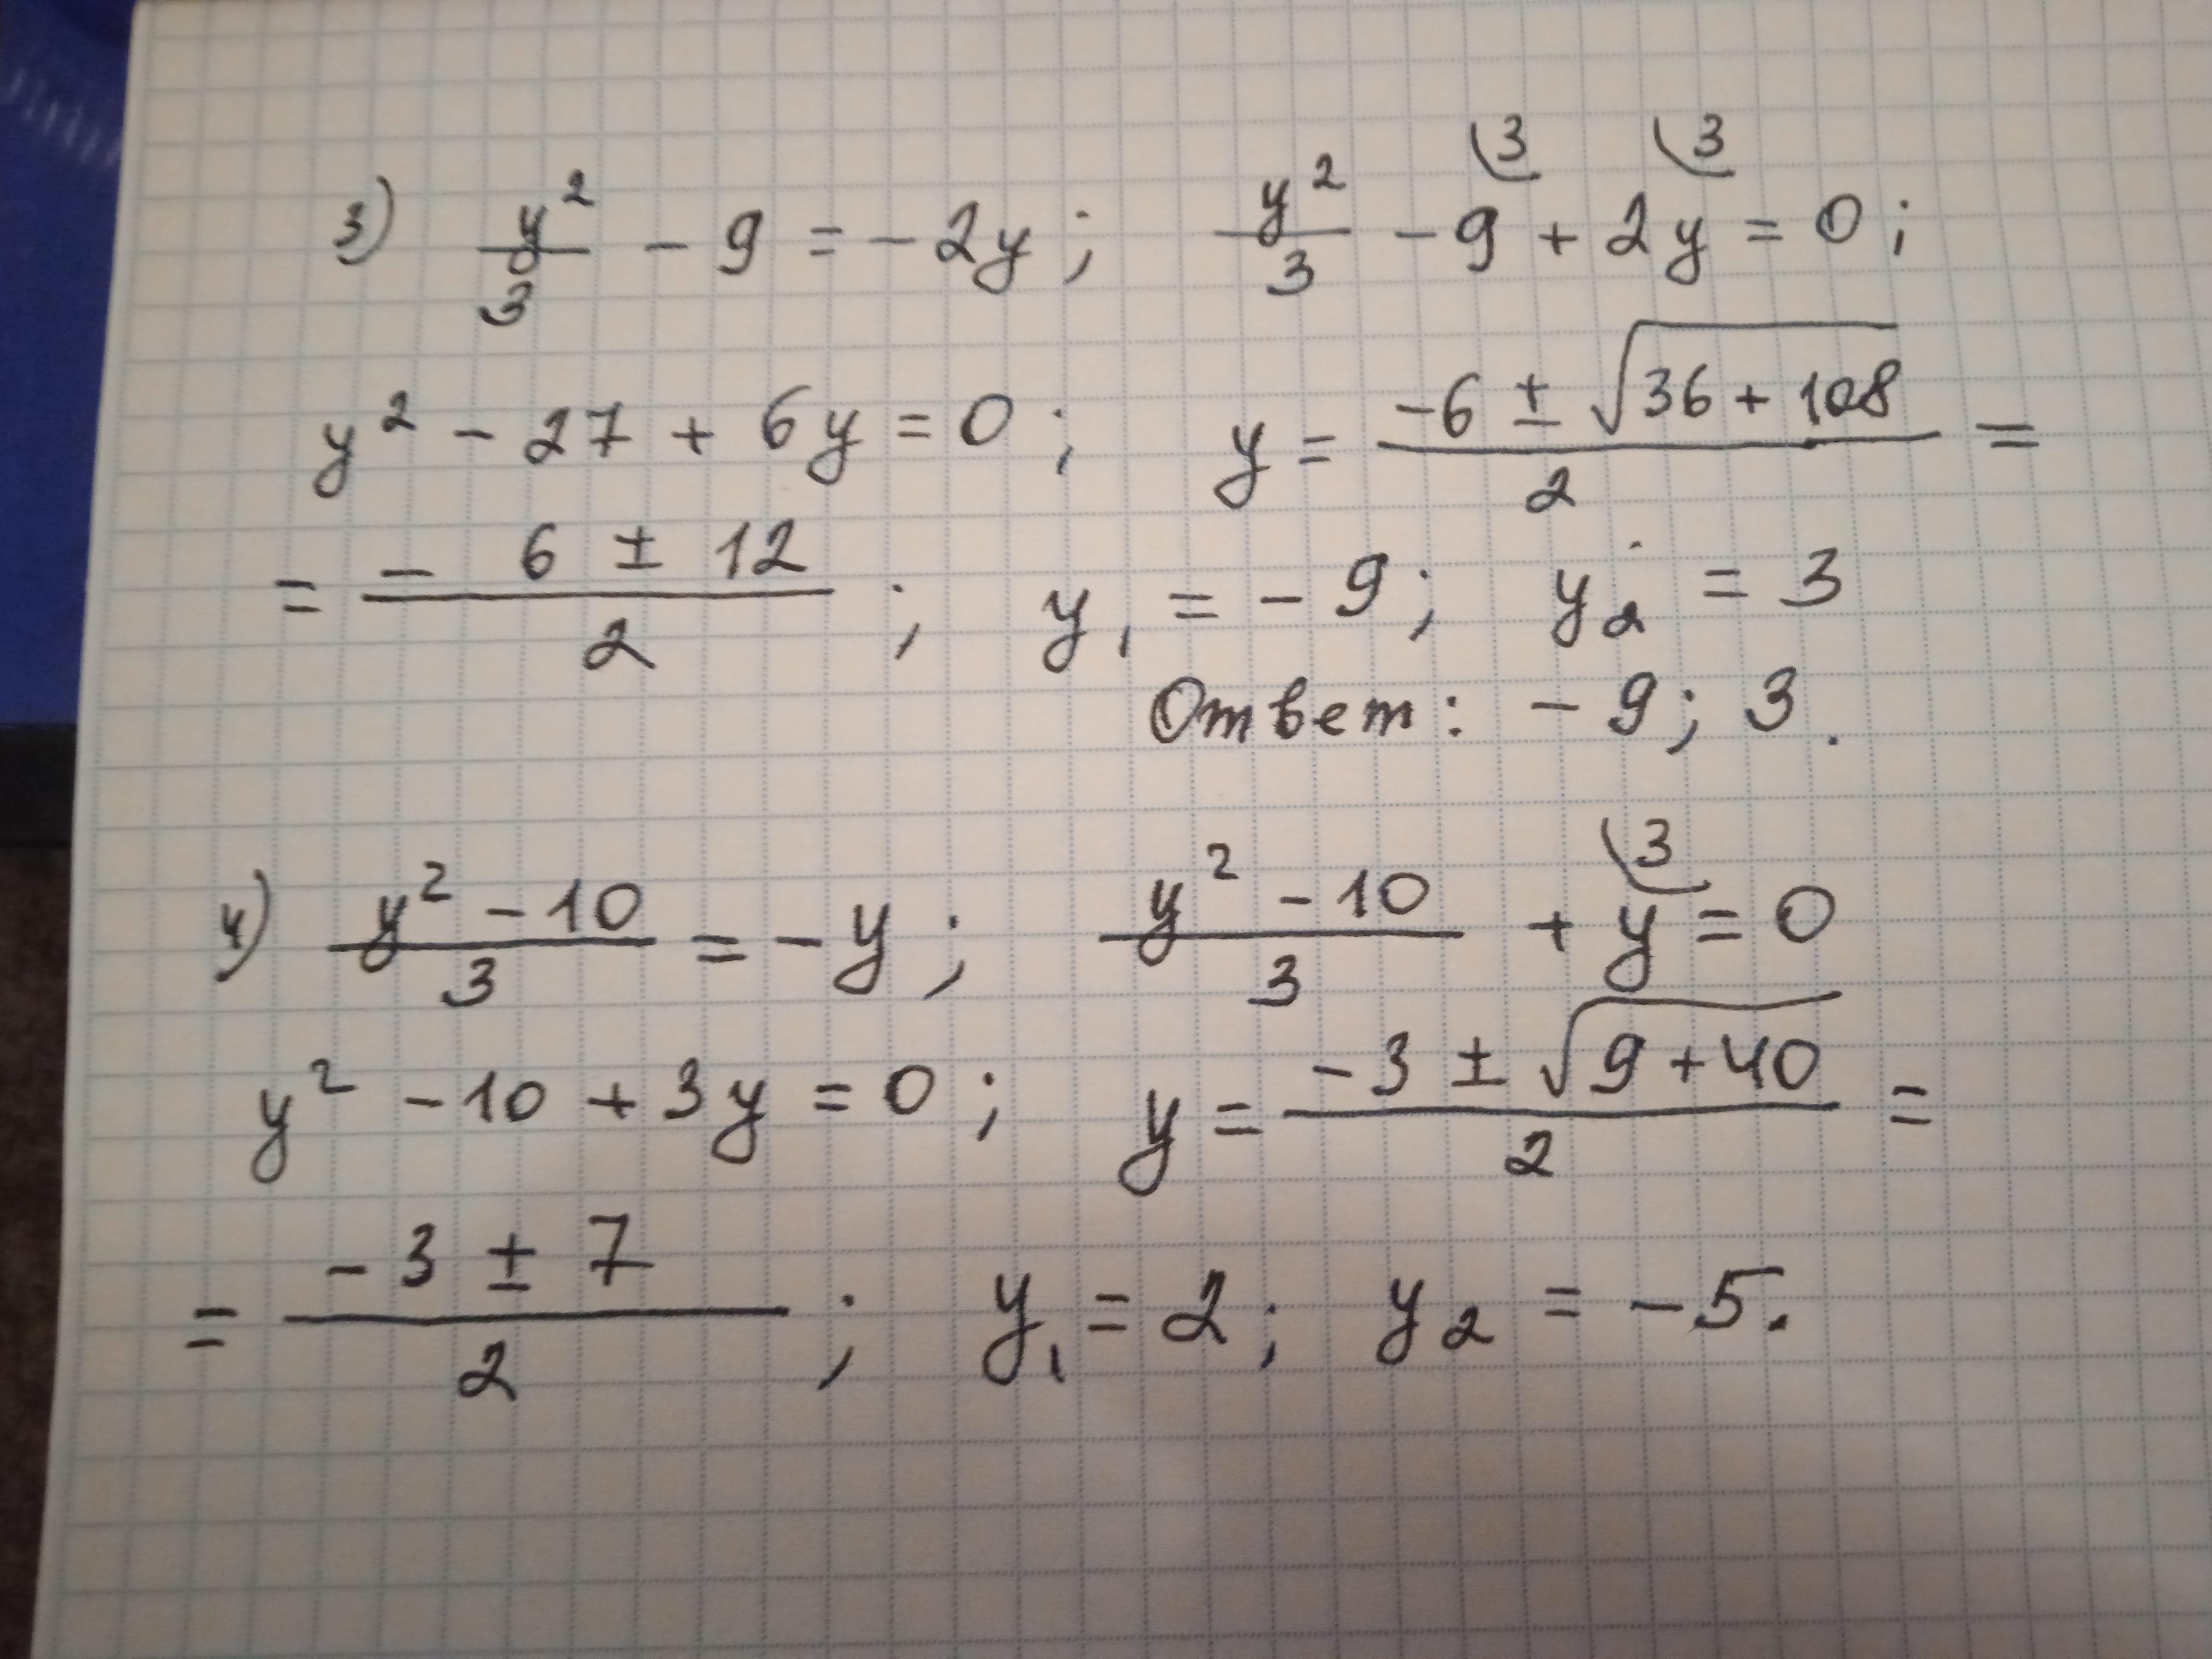 3) y²/3 - 9 = -2y; y²/3 - 9 (3 + 2y (3 = 0;
y² - 27 + 6y = 0; y = (-6 ± √(36 + 108))/2 =
= (-6 ± 12)/2; y₁ = -9; y₂ = 3
Ответ: -9; 3.
4) (y² - 10)/3 = -y; (y² - 10)/3 + y (3 = 0
y² - 10 + 3y = 0; y = (-3 ± √(9 + 40))/2 =
= (-3 ± 7)/2; y₁ = 2; y₂ = -5.